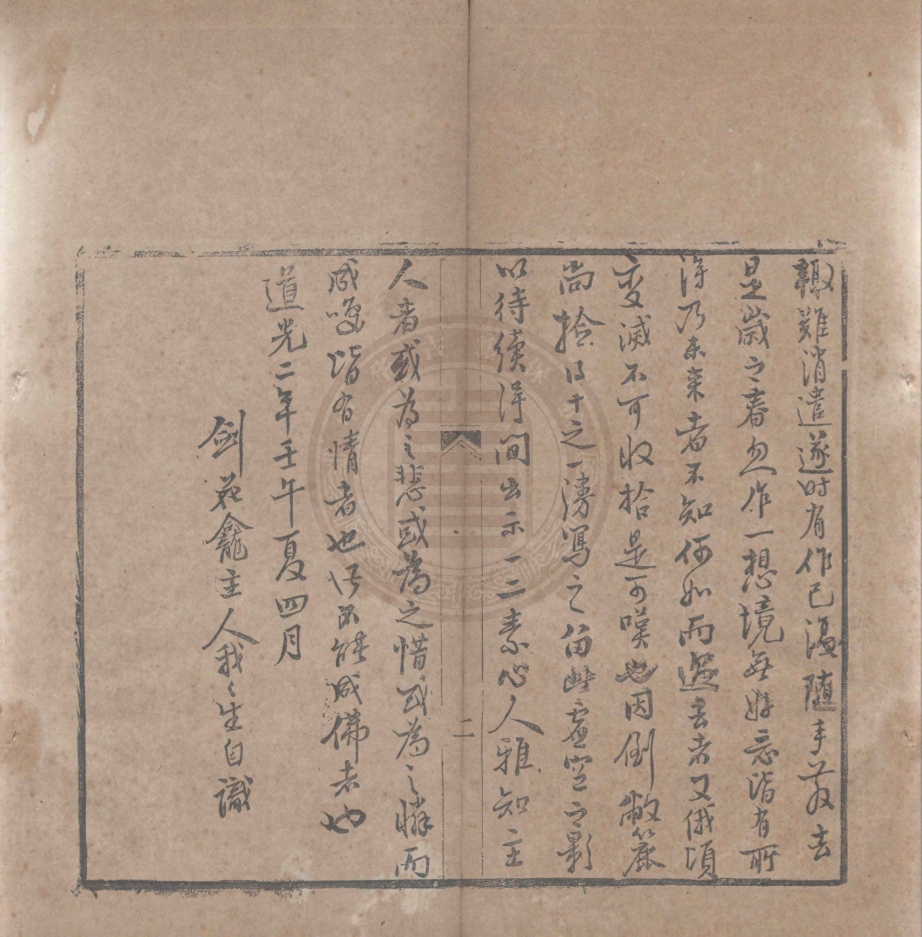 輙難消遣遂時有作已復隨手散去
是歲之春忽作一想境無好惡皆有所
得乃未来者不知何如而過去者又俄頃
变滅不可收拾是可嘆也因倒敝簏
尚拾得十之一湧寫之留此虛空之影
以待續得間出示一二素心人雅知主
人者或為之悲或為之惜或為之憐而
咸嘆皆有情者也皆不能成佛者也
道光二年壬午夏四月
劍花龕主人我我生自識
二